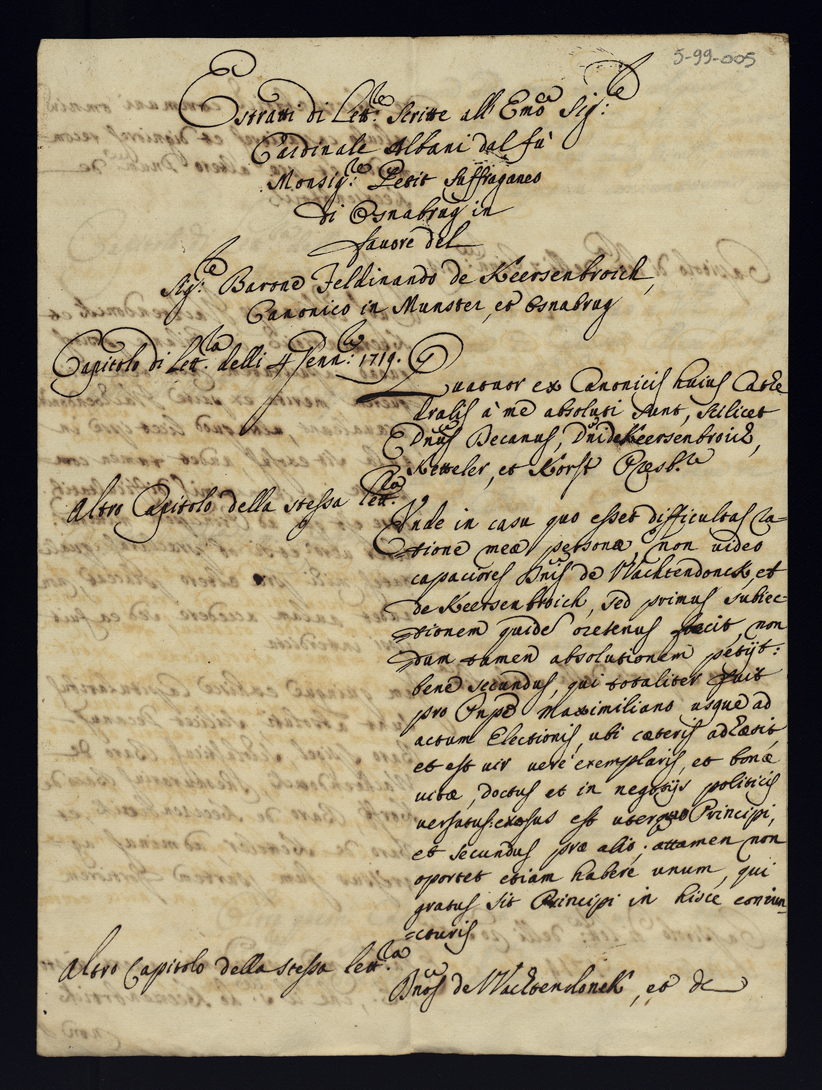 5-99-005
Estratti di Lett.re Scritte all' Emo Sig.re
Cardinale Albani dal fù
Monsig.re Petit Suffraganeo
di Osnabrug in
favore del
Sig.re Barone Feldinando de Keersenbroich,
Canonico in Munster, et Osnabrug
Capitolo di Lett.ra delli 4 Genn.ro 1719.
Quatuor ex Canonicis huius Cathe
dralis à me absoluti sunt, scilicet
Dnus Decanus, Dni de Keersenbroich,
Ketteler, et Korst Presb.re
Altro Capitolo della stessa lett.ra
Unde in casu quo esset difficultas ra=
=tione meæ personæ, non video
capaciores Dnis de Wachtendonck, et
de Keersenbroich, sed primus subiec=
=tionem quidē oretenus fecit, non
dum tamen absolutionem petijt:
bene secundus, qui totaliter fuit
pro Pnpe Maximiliano usque ad
actum Electionis, ubi cæteris adhæsit,
et est vir verè exemplaris, et bonæ
vitæ, doctus et in negotijs politicis
versatus: exosus est uterque Principi,
et secundus præ alio: attamen non
oportet etiam habere unum, qui
gratus sit Principi in hisce coniun=
=cturis
Altro Capitolo della stessa lett.ra
Dnus de Wachtendonck, et de